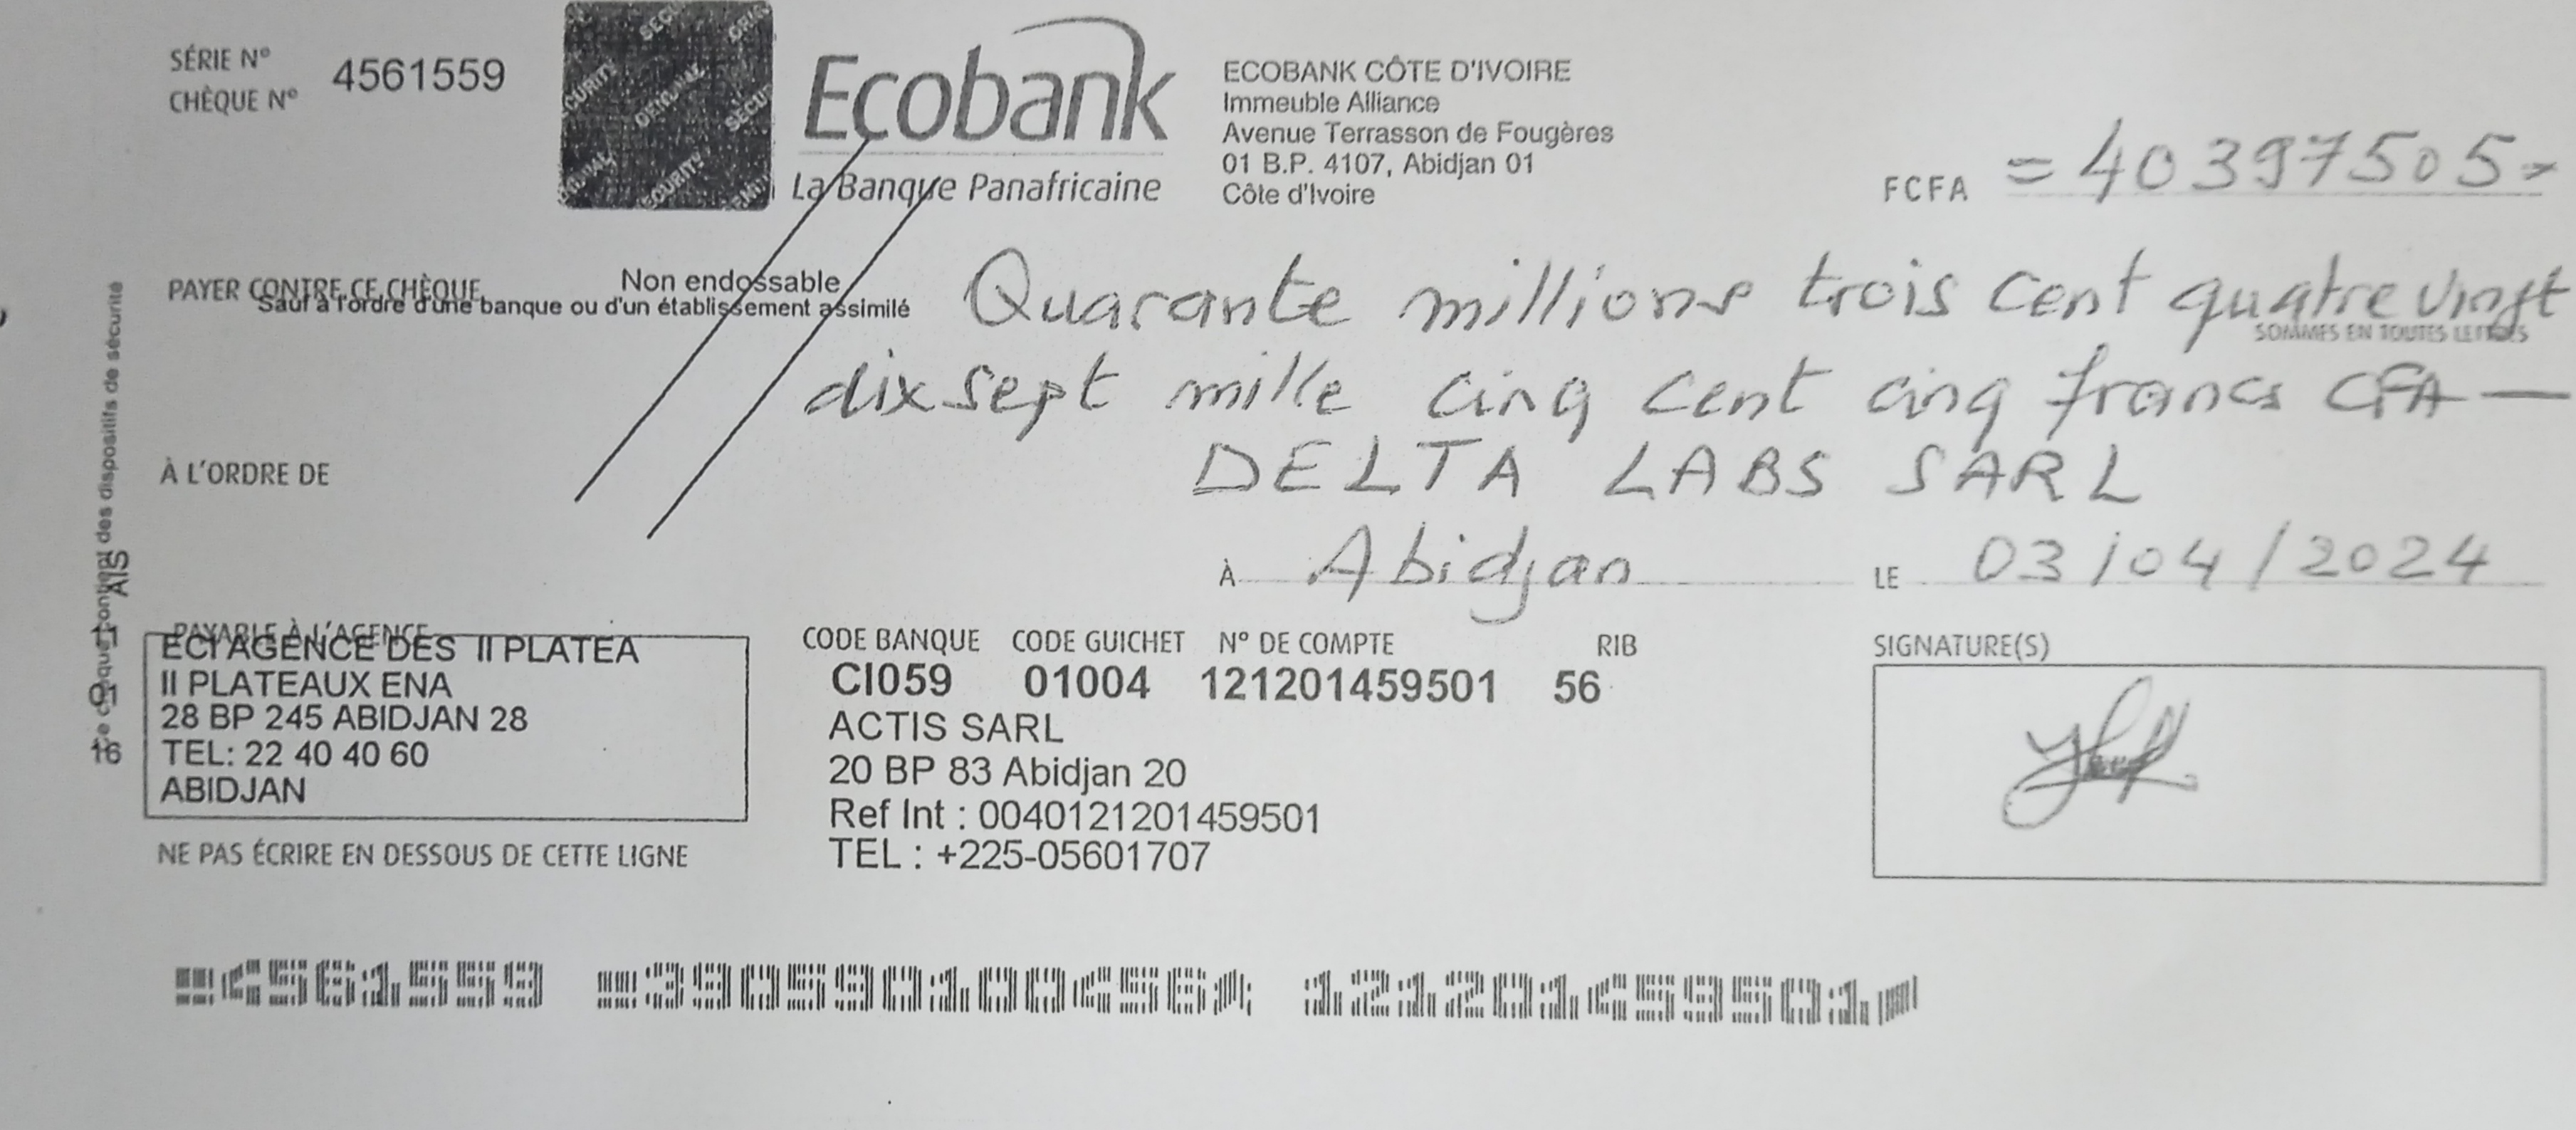 SÉRIE N°
CHÈQUE N°
4561559
SECURITY ORIGINAL
Ecobank
La Banque Panafricaine
ECOBANK CÔTE D'IVOIRE
Immeuble Alliance
Avenue Terrasson de Fougères
01 B.P. 4107, Abidjan 01
Côte d'Ivoire
FCFA = 40397505=
PAYER CONTRE CE CHÈQUE
Non endossable
Sauf à l'ordre d'une banque ou d'un établissement assimilé
Quarante millions trois cent quatre vingt
SOMMES EN TOUTES LETTRES
dix sept mille cinq cent cinq francs CFA —
À L'ORDRE DE
DELTA LABS SARL
À Abidjan LE 03/04/2024
des dispositifs de sécurité
AIS
11
01
16
PAYABLE À L'AGENCE
ECI AGENCE DES II PLATEA
II PLATEAUX ENA
28 BP 245 ABIDJAN 28
TEL: 22 40 40 60
ABIDJAN
NE PAS ÉCRIRE EN DESSOUS DE CETTE LIGNE
CODE BANQUE CODE GUICHET N° DE COMPTE RIB
CI059 01004 121201459501 56
ACTIS SARL
20 BP 83 Abidjan 20
Ref Int : 0040121201459501
TEL : +225-05601707
SIGNATURE(S)
4561559 390590100456 121201459501